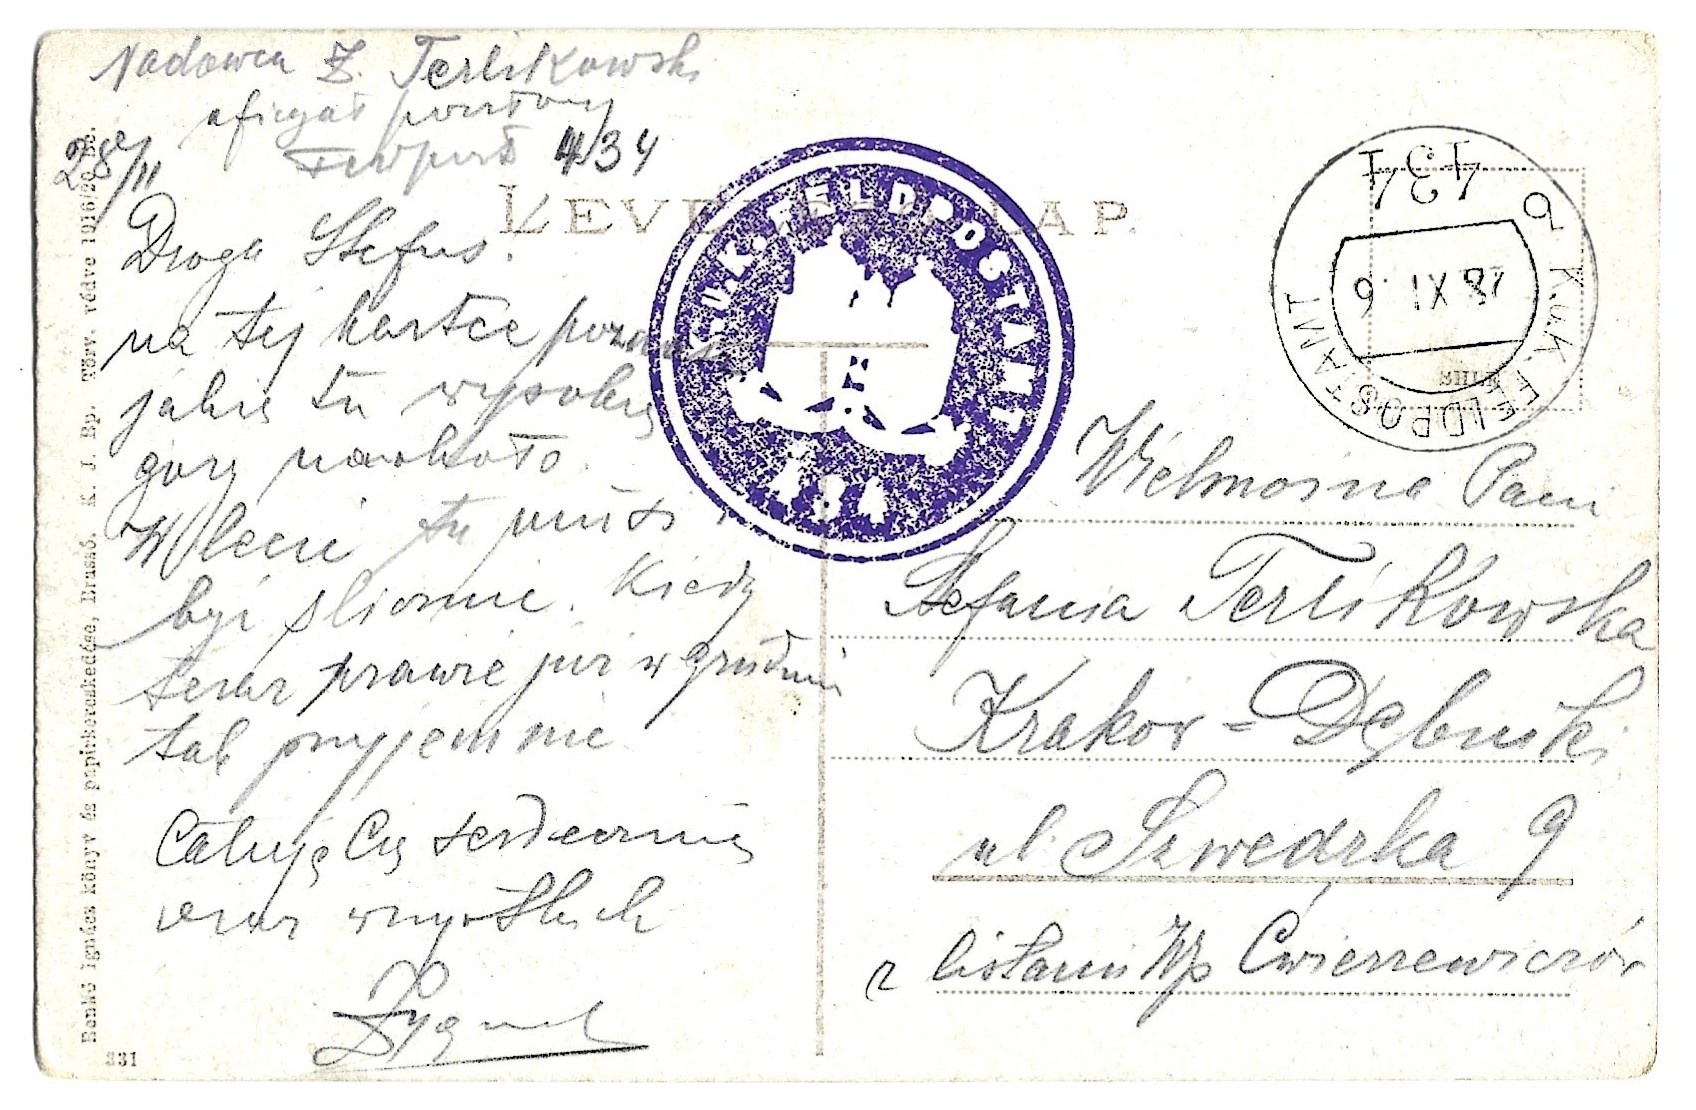 Nadawca Z. Terlikowski
oficyał pocztowy
Feldpost 434
28/II
LEVELEZŐLAP.
Droga Stefus!
na tej kartce poznasz
jakie tu wysokie
góry naokoło.
W lecie tu musi
być ślicznie. Kiedy
teraz prawie już w grudniu
tak przyjemnie
Całuję Cię serdecznie
oraz wszystkich
Zygmunt
K.u.K. FELDPOSTAMT
434
K.u.K. FELDPOSTAMT
434
Wielmożna Pani
Stefania Terlikowska
Kraków = Dębniki
ul. Szwedzka 9
z listami Wp Ćwierzewiczów
Benkő Ignácz könyv és papirkereskedése, Brassó. K. J. Bp. Törv. védve 1916/20
331